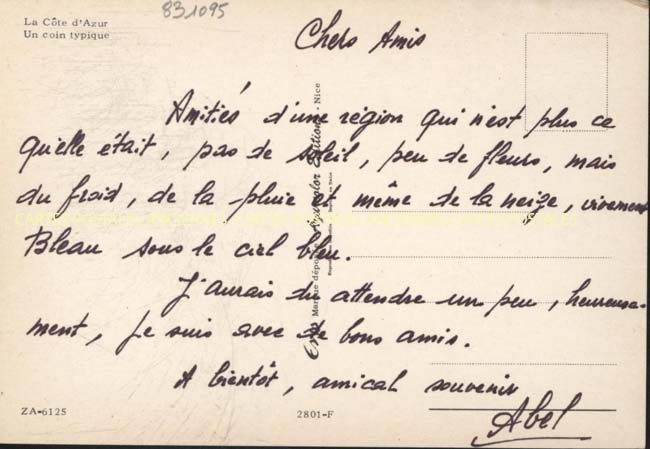 La Côte d'Azur
Un coin typique
831095
Chers Amis
Amitiés d'une région qui n'est plus ce
qu'elle était, pas de soleil, peu de fleurs, mais
du froid, de la pluie et même de la neige, vivement
Bleau sous le ciel bleu.
J'aurais du attendre un peu, heureuse-
ment, je suis avec de bons amis.
A bientôt, amical souvenir
Abel
ZA-6125
2801-F
Marque déposée
Editions - Nice